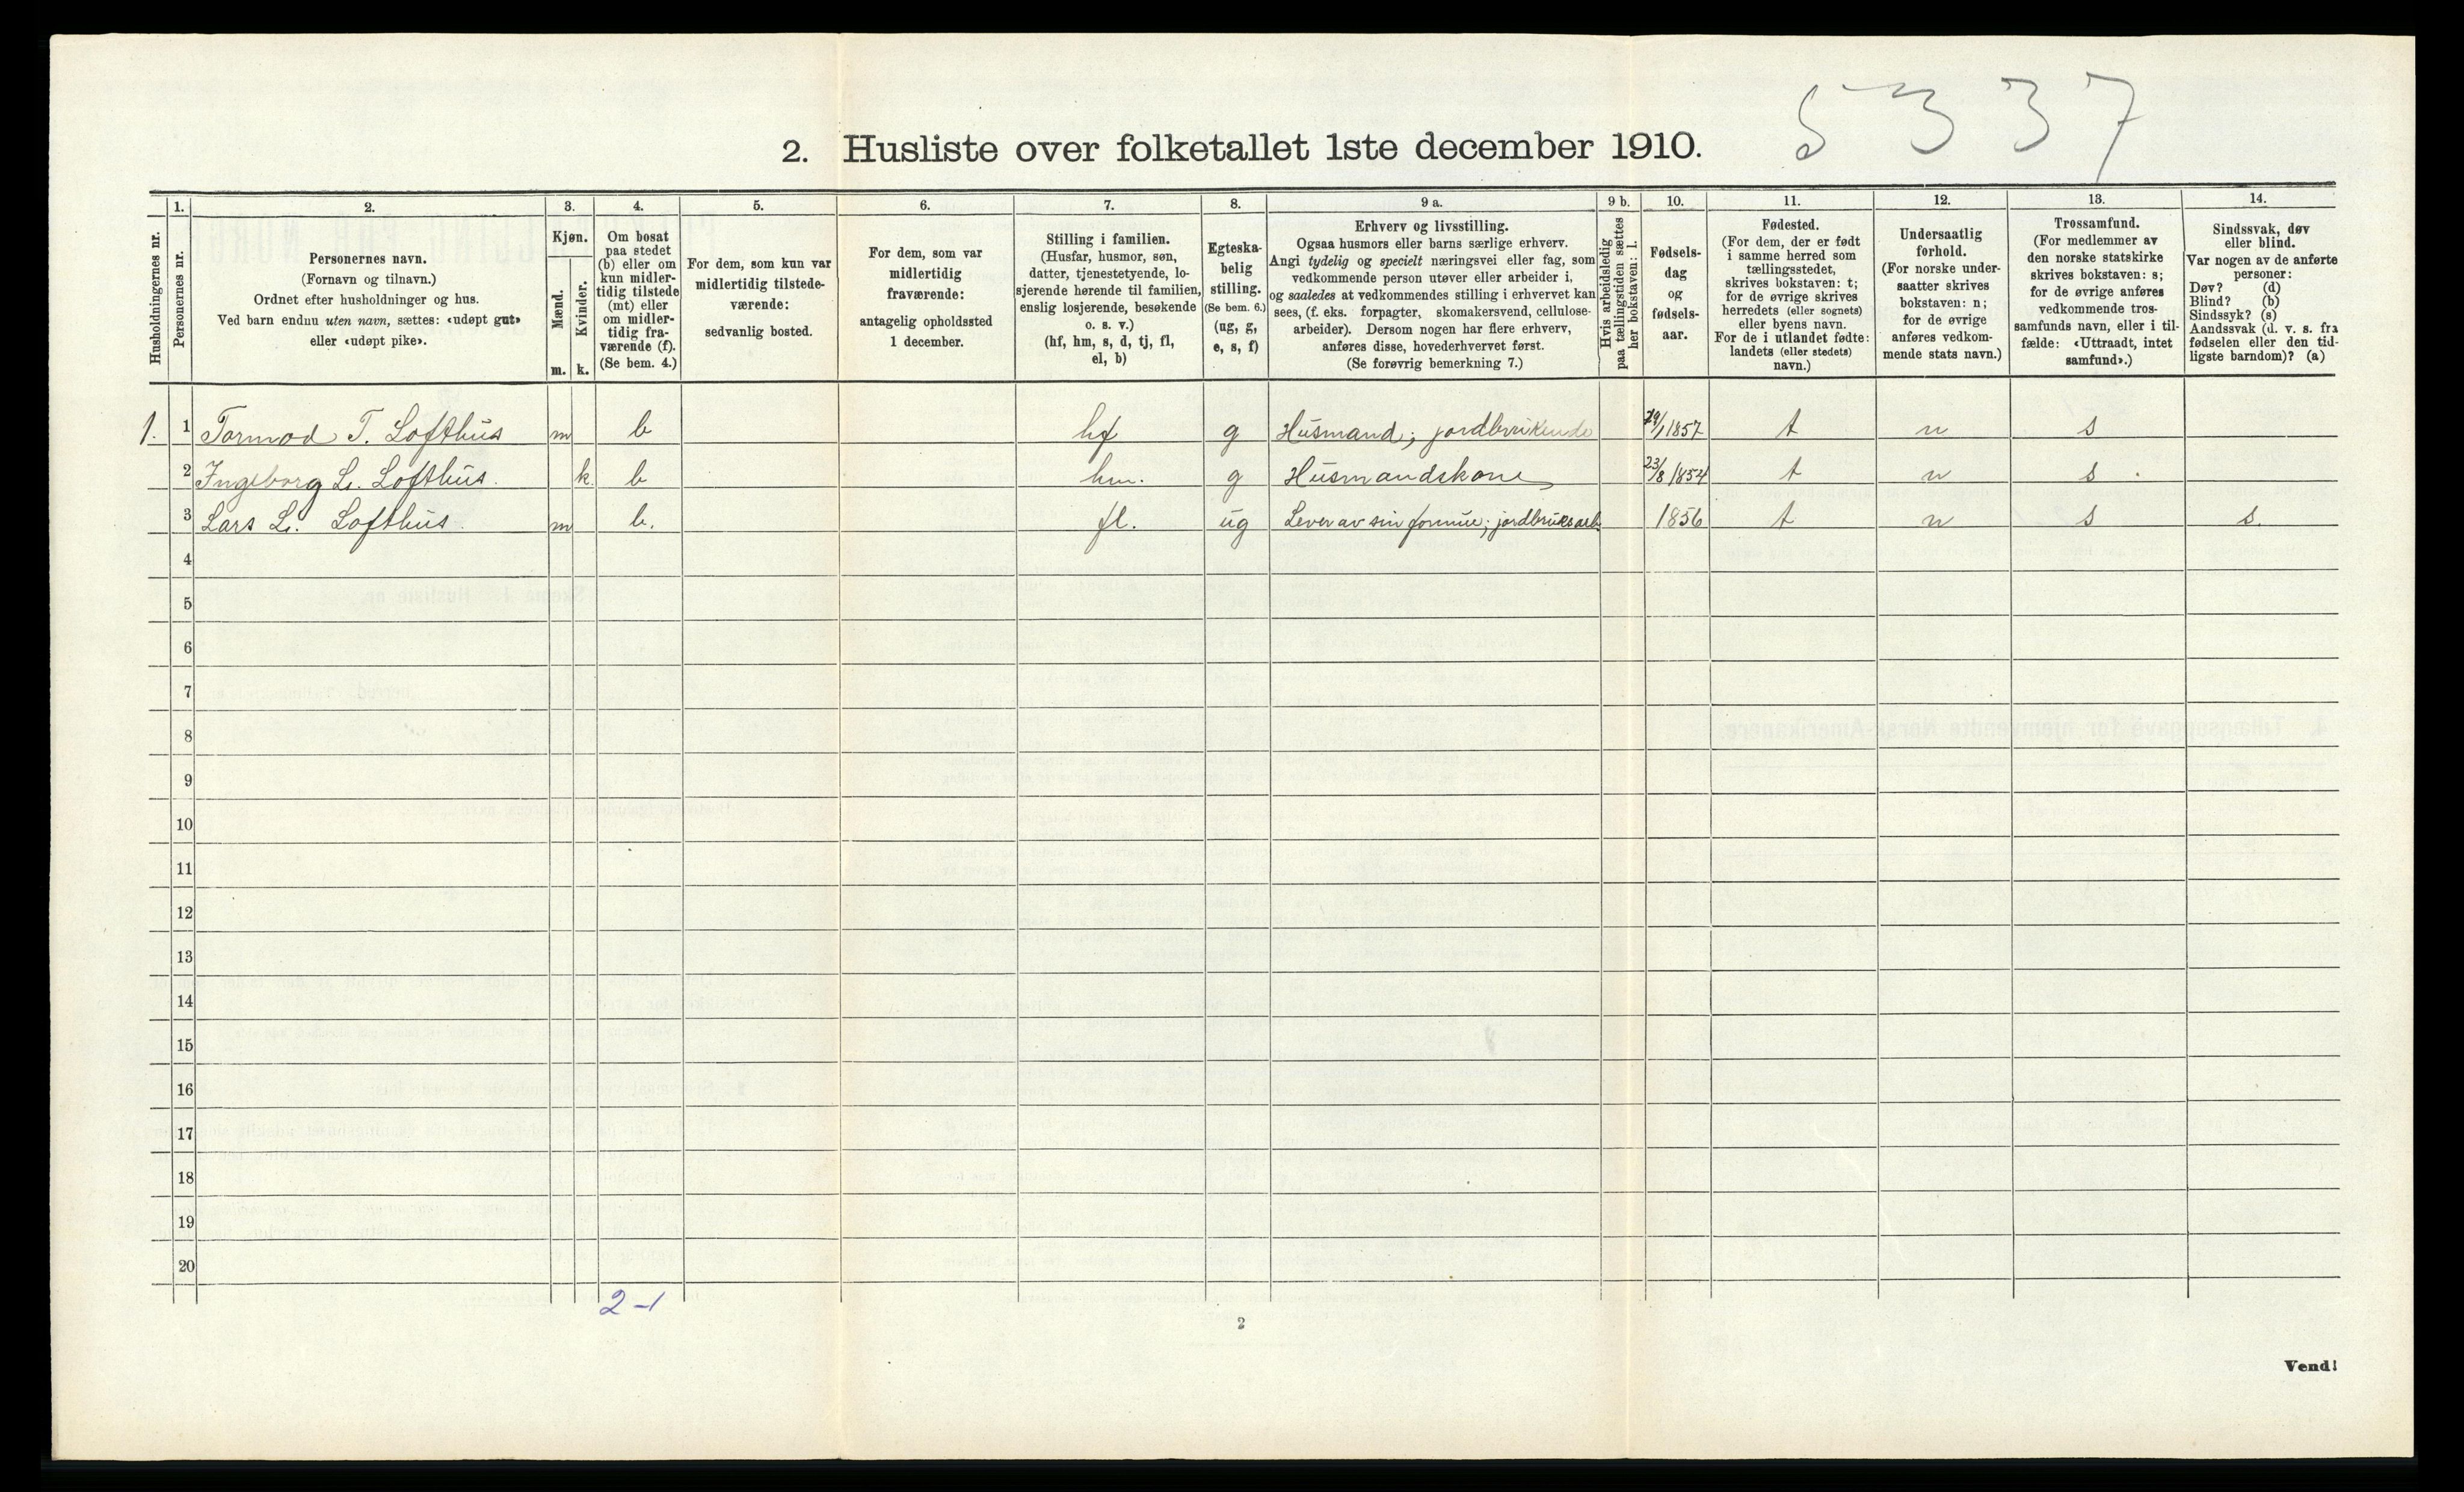 5337
2. Husliste over folketallet 1ste december 1910.
Husholdningernes nr.
1.
Personernes nr.
2.
Personernes navn.
(Fornavn og tilnavn.)
Ordnet efter husholdninger og hus.
Ved barn endnu uten navn, sættes: «udøpt gut»
eller «udøpt pike».
3.
Kjøn.
Mænd.
Kvinder.
m. k.
4.
Om bosat
paa stedet
(b) eller om
kun midler-
tidig tilstede
(mt) eller
om midler-
tidig fra-
værende (f).
(Se bem. 4.)
5.
For dem, som kun var
midlertidig tilstede-
værende:
sedvanlig bosted.
6.
For dem, som var
midlertidig
fraværende:
antagelig opholdssted
1 december.
7.
Stilling i familien.
(Husfar, husmor, søn,
datter, tjenestetyende, lo-
sjerende hørende til familien,
enslig losjerende, besøkende
o. s. v.)
(hf, hm, s, d, tj, fl,
el, b)
8.
Egteska-
belig
stilling.
(Se bem. 6.)
(ug, g,
e, s, f)
9 a.
Erhverv og livsstilling.
Ogsaa husmors eller barns særlige erhverv.
Angi tydelig og specielt næringsvei eller fag, som
vedkommende person utøver eller arbeider i,
og saaledes at vedkommendes stilling i erhvervet kan
sees, (f. eks. forpagter, skomakersvend, cellulose-
arbeider). Dersom nogen har flere erhverv,
anføres disse, hovederhvervet først.
(Se forøvrig bemerkning 7.)
9 b.
Hvis arbeidsledig
paa tællingstiden sættes
her bokstaven: l.
10.
Fødsels-
dag
og
fødsels-
aar.
11.
Fødested.
(For dem, der er født
i samme herred som
tællingsstedet,
skrives bokstaven: t;
for de øvrige skrives
herredets (eller sognets)
eller byens navn.
For de i utlandet fødte:
landets (eller stedets)
navn.)
12.
Undersaatlig
forhold.
(For norske under-
saatter skrives
bokstaven: n;
for de øvrige
anføres vedkom-
mende stats navn.)
13.
Trossamfund.
(For medlemmer av
den norske statskirke
skrives bokstaven: s;
for de øvrige anføres
vedkommende tros-
samfunds navn, eller i til-
fælde: «Uttraadt, intet
samfund».)
14.
Sindssvak, døv
eller blind.
Var nogen av de anførte
personer:
Døv? (d)
Blind? (b)
Sindssyk? (s)
Aandssvak (d. v. s. fra
fødselen eller den tid-
ligste barndom)? (a)
1. 1 Tormod T. Lofthus m b hf g Husmand; jordbrukende 29/1 1857 t n s
2 Ingeborg L. Lofthus. k. b hm. g Husmandskone 23/8 1854 t n s
3 Lars L. Lofthus. m b. fl. ug Lever av sin formue; jordbruksarb. 1856 t n s s.
4
5
6
7
8
9
10
11
12
13
14
15
16
17
18
19
20
2-1
2
Vend!